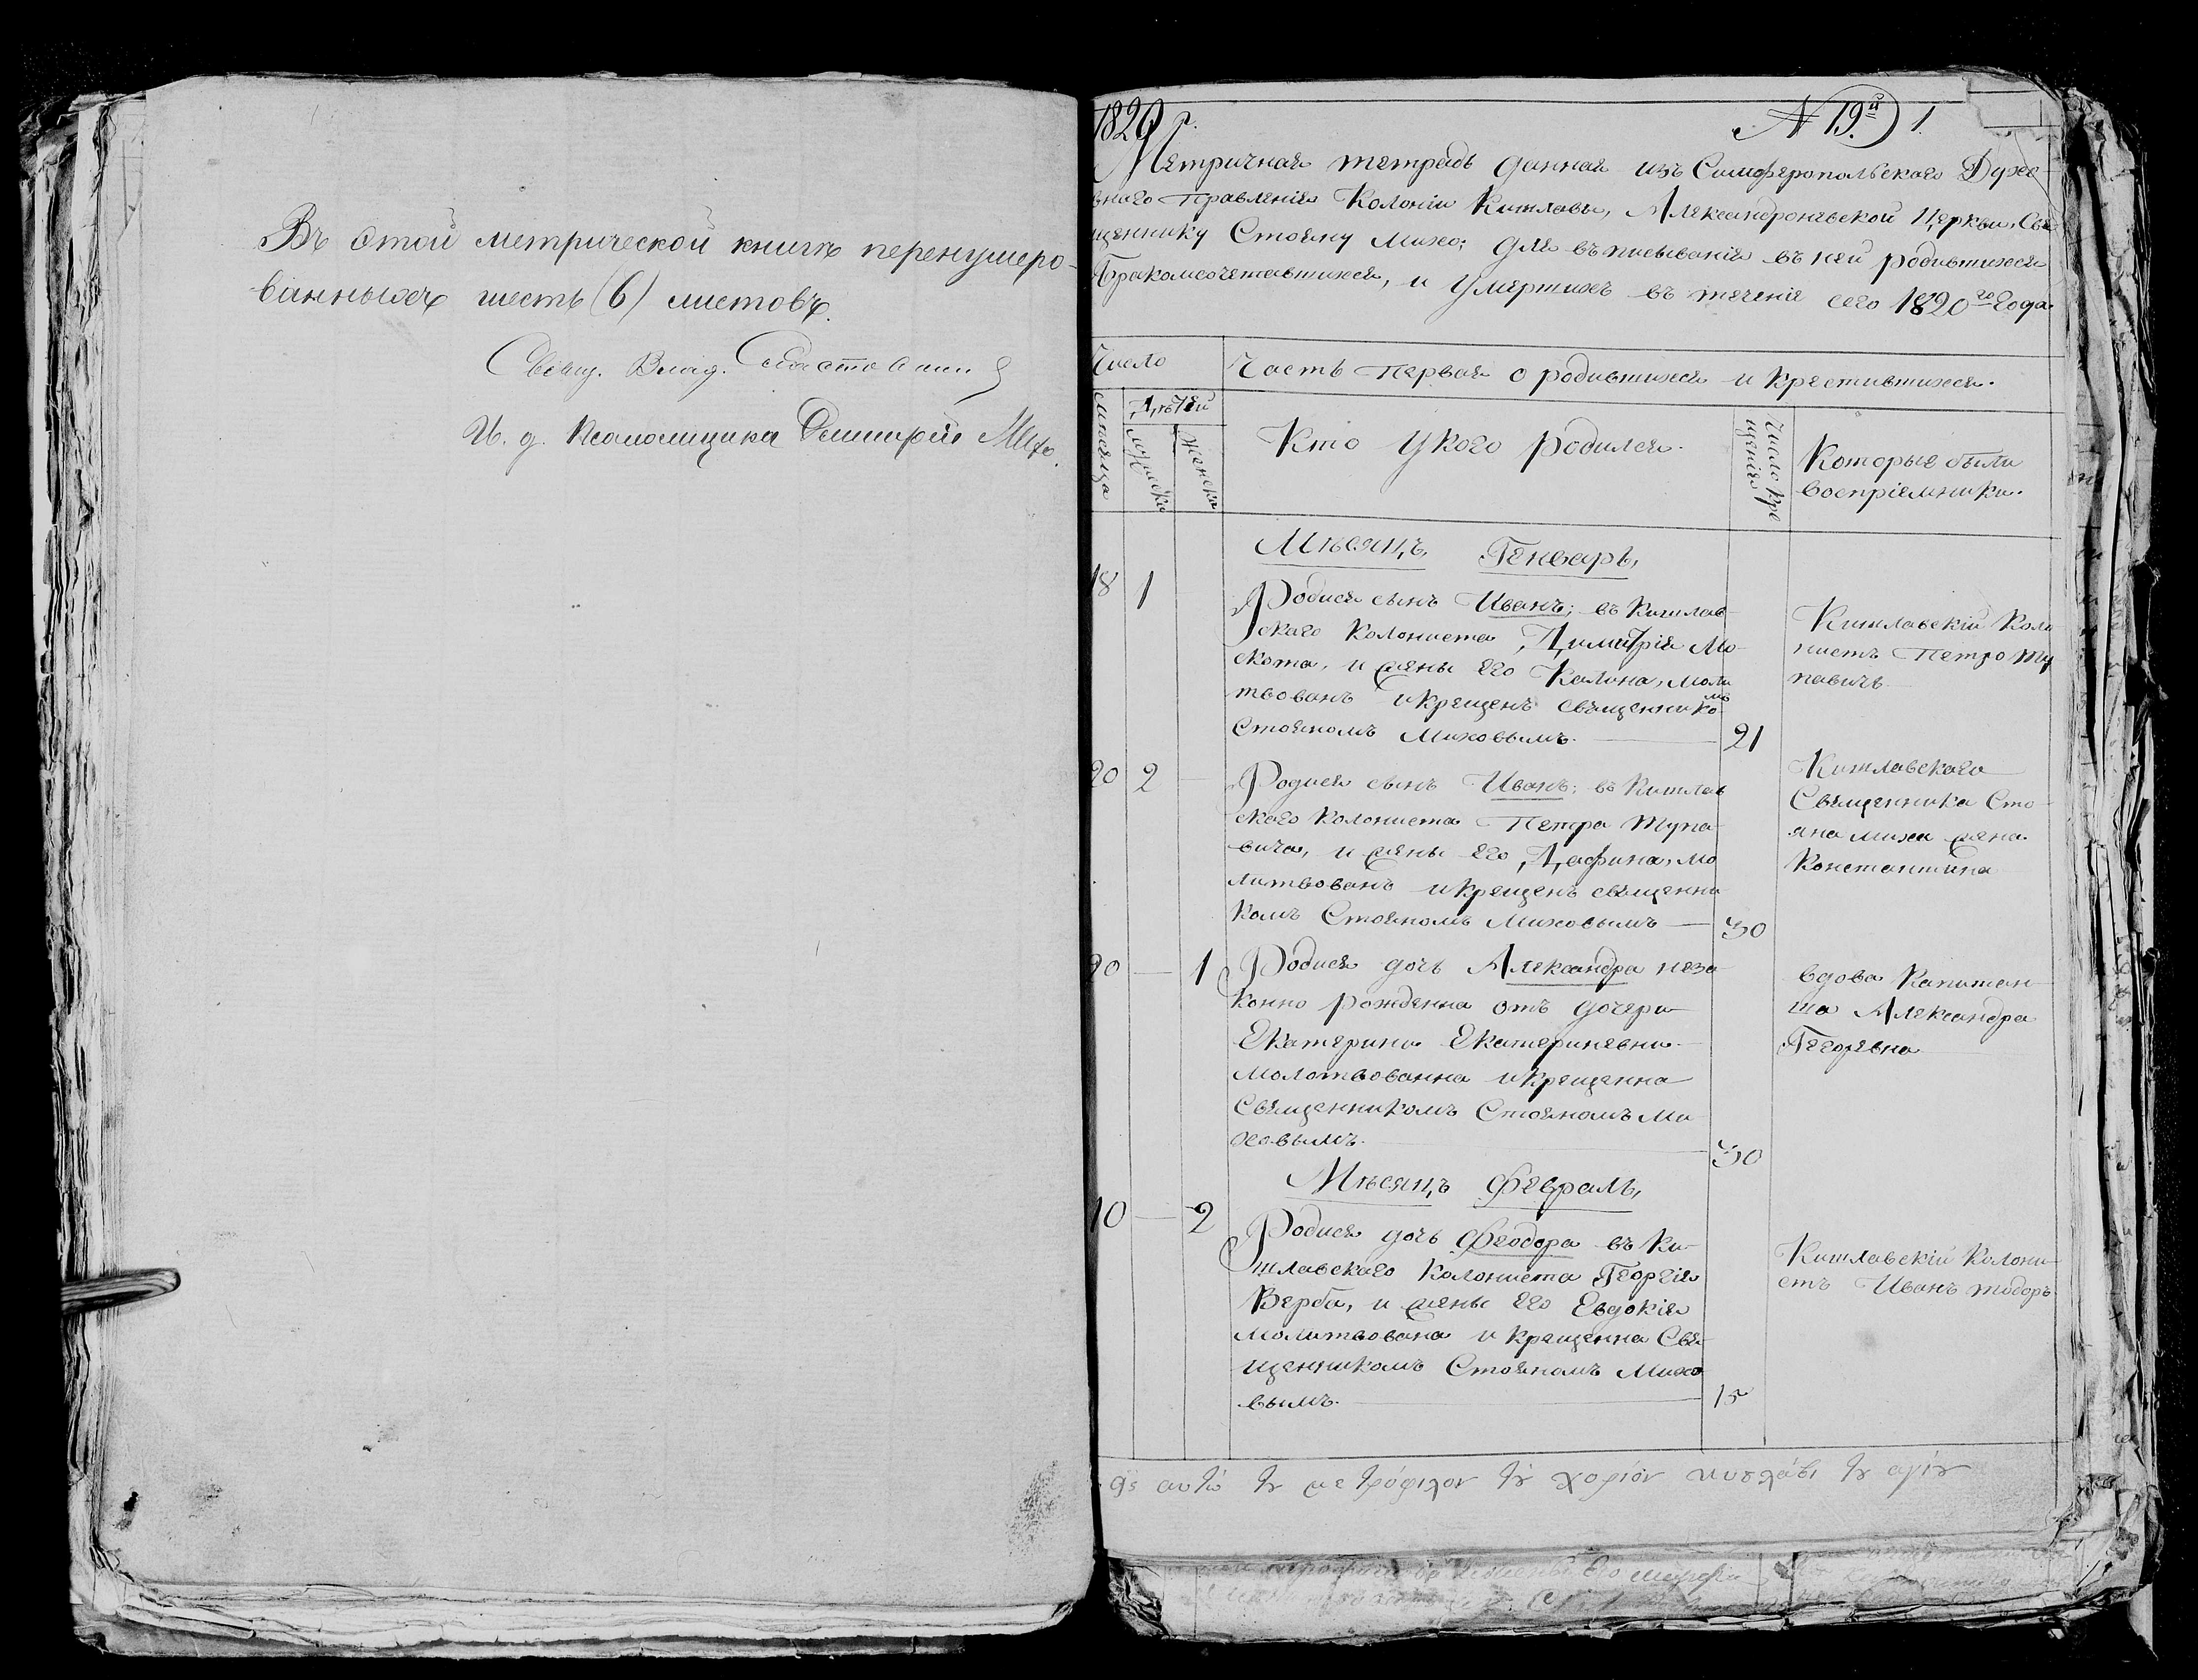 Въ этой метрической книгѣ перенумеро-
ванныхъ шесть (6) листовъ.
Свящ. Влад.
И. д. Псаломщика Димитрій Михо.
1820 г. N 19й 1.
Метричная тетрадь данная изъ Симферопольскаго Духо-
внаго Правленія Колоніи Кишлавы, Александроневской Церкви, Свя
щеннику Стояну Михо; для въписыванія въ ней родившихся
Бракомсочетавшихся, и Умертихъ въ теченіе сего 1820го Года
Число
Часть Первая о родившихся и Крестившихся.
Месяца
Дѣтей
мужеска
женска
Кто Укого родился.
Число кре
щенія
Которые были
воспріемники.
Мѣсяцъ Генварь,
18 1
Родися сынъ Иванъ; въ Кишлав
скаго Колониста, Димитрія Мо-
скота, и жены его Калина, моли
твованъ и крещенъ священнико
мъ
Стояномъ Миховымъ.
21
Кишлавскій Коло
нистъ Петро Ту
павичъ
20 2
Родися сынъ Иванъ; въ Кишлав
скаго Колониста Петра Тупа-
вича, и жены его, Дафина, мо
литвованъ и крещенъ священни
комъ Стояномъ Миховымъ
30
Кишлавскаго
Священника Сто-
яна михи жена
Константина
20 — 1
Родися дочь Александра неза-
конно рожденна отъ дочери
Екатерини Екатериневни
молотвованна и крещенна
Священникомъ Стояномъ Ми
ховымъ.
30
вдова Капитан-
ша Александра
Гегоревна
Мѣсяцъ Февраль,
10 — 2
Родися дочь Феодора въ Ки-
шлавскаго Колониста Георгія
Верба, и жены его Евдокія
молитвована и крещенна Свя-
щенникомъ Стояномъ Михо
вымъ.
15
Кишлавскій Колони-
стъ Иванъ тодоръ